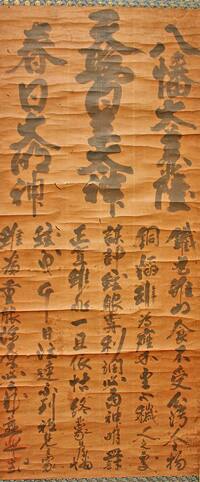 八幡大菩薩
天照皇大神
春日大明神
鐵丸雖為食不受穢人物
銅焔雖為座不至穢人
謀計雖眼前利潤必當神明罰
正直雖非一旦依怙終蒙日月憐
雖曳千日注連不到邪見家
雖為重服深厚可赴慈悲室